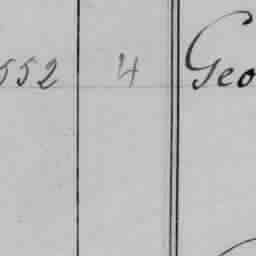 552 4 Geo